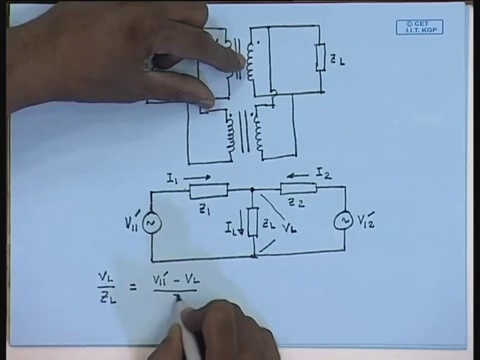 © CET
I.I.T. KGP
ZL
I1
I2
Z1
Z2
V11′
IL
ZL
VL
V12′
VL / ZL = V11′ − VL